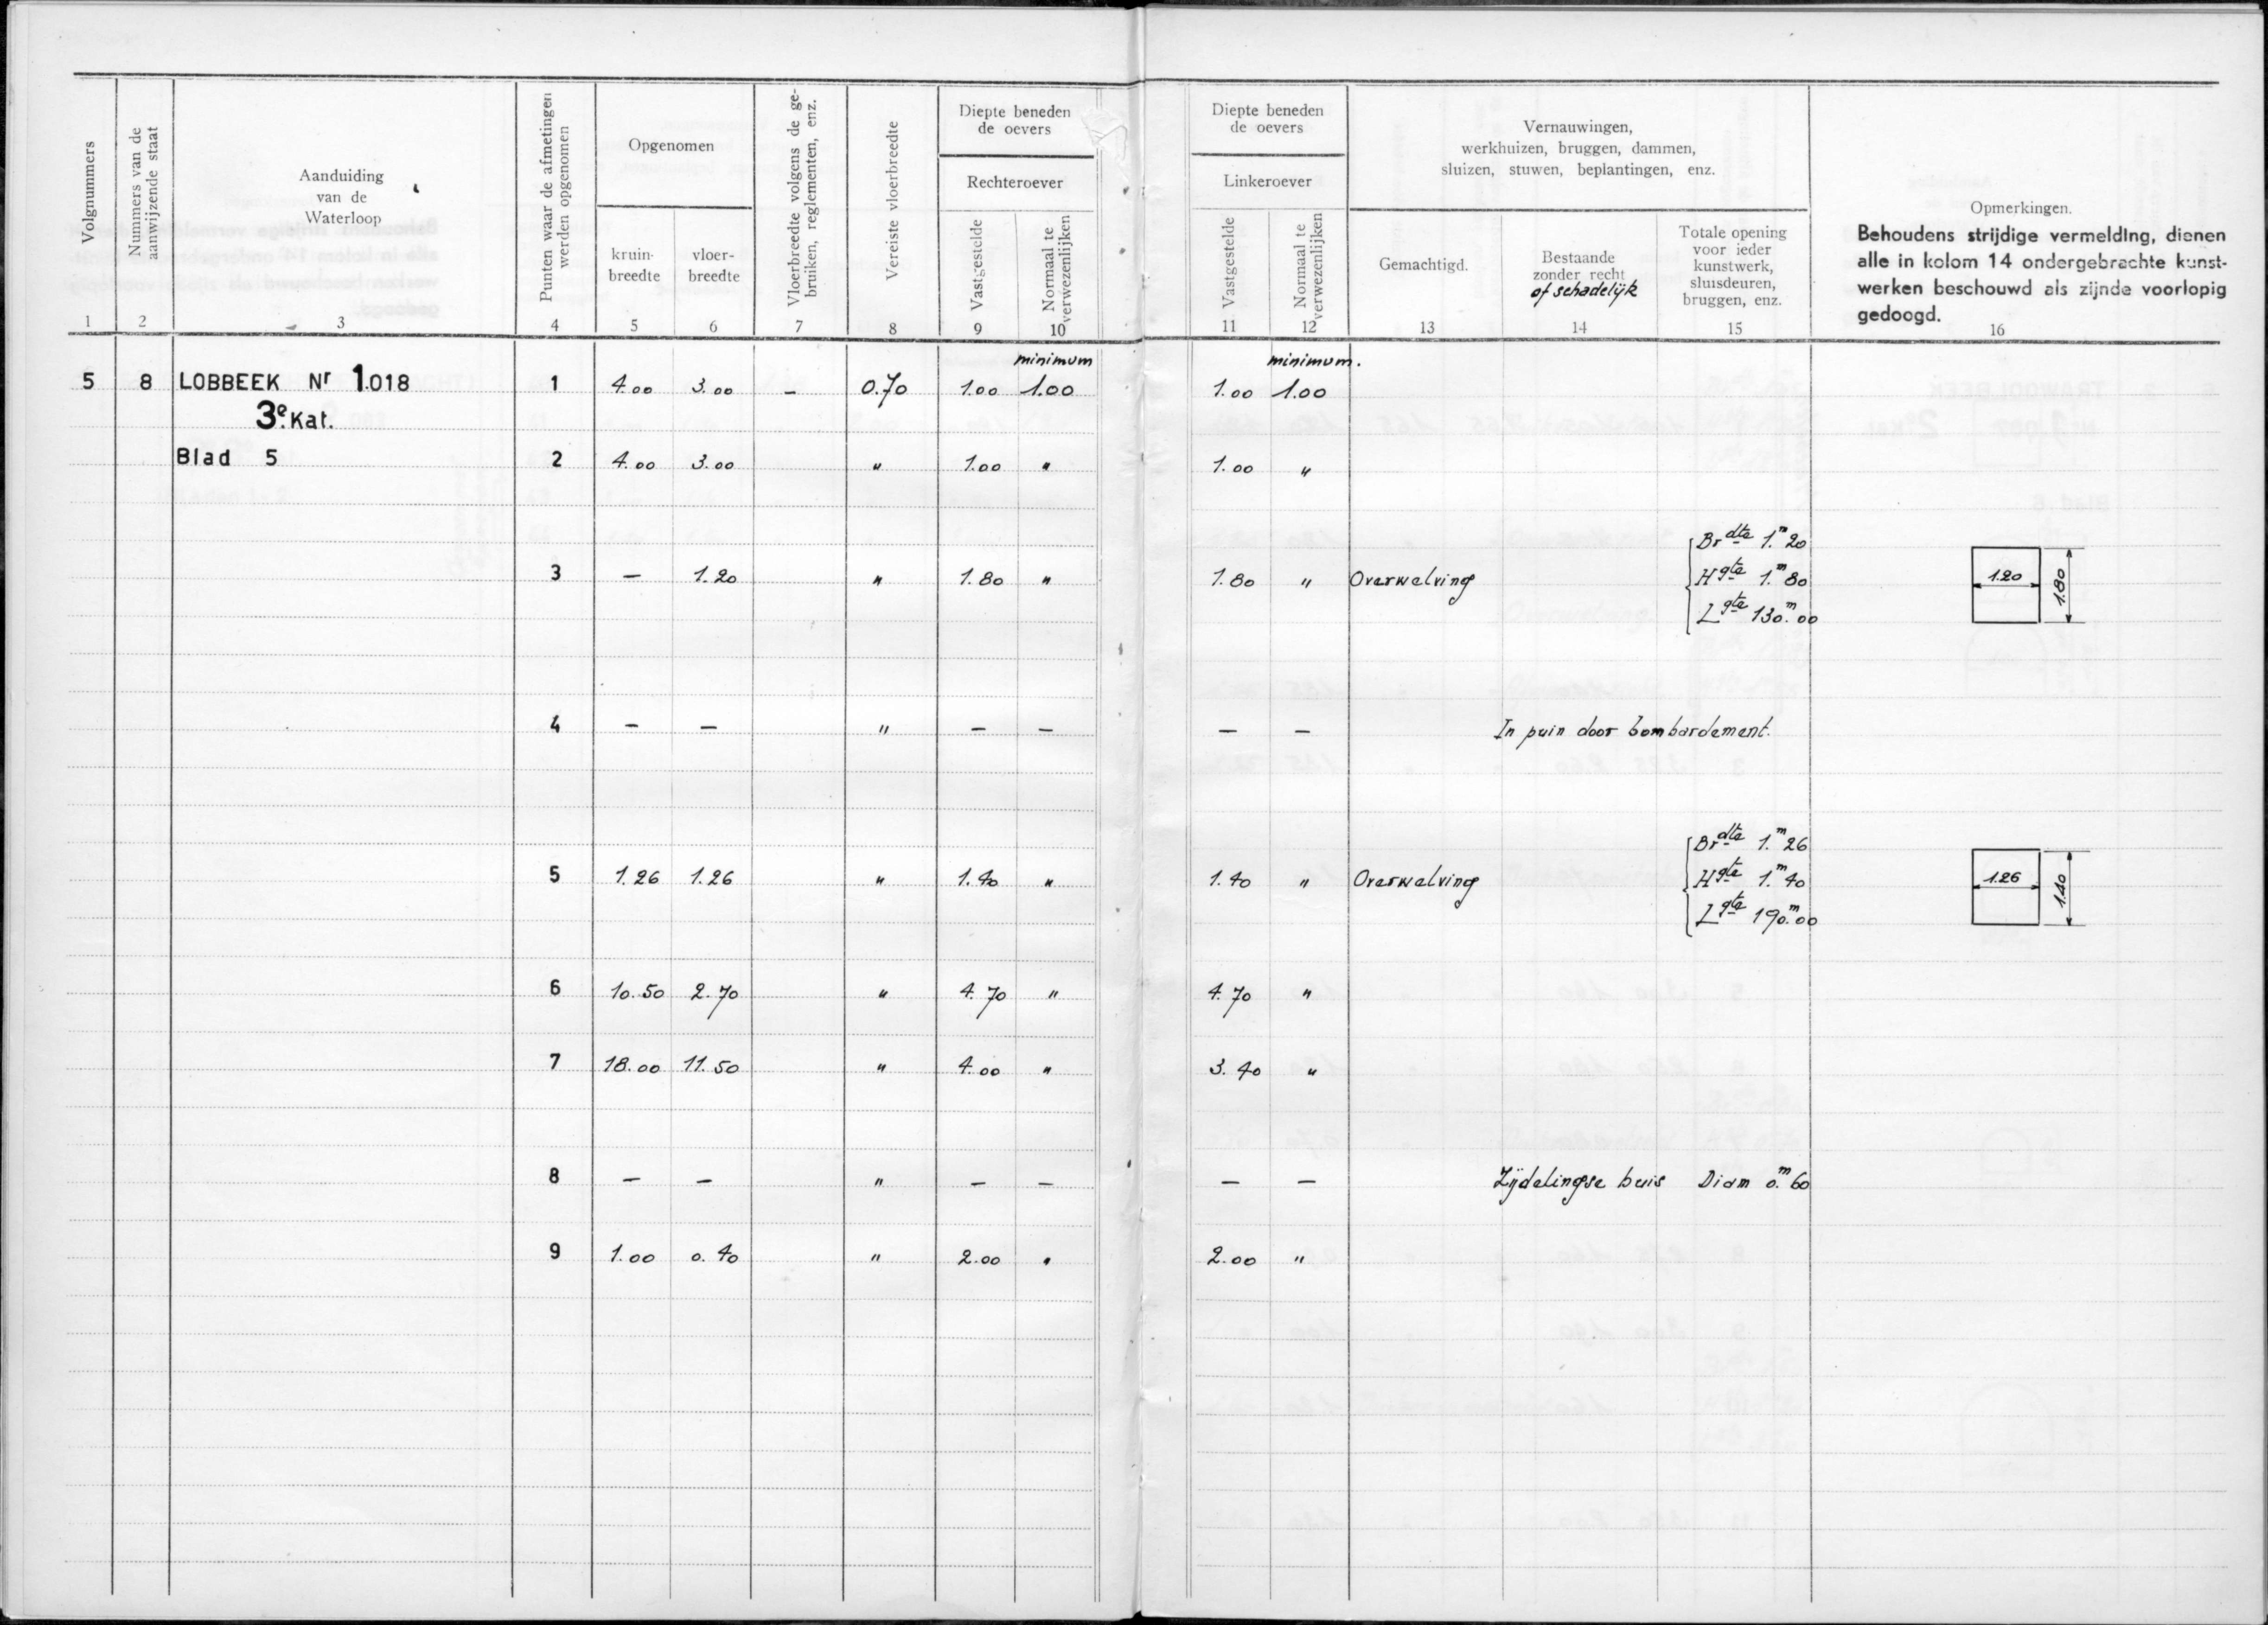 Volgnummers
Nummers van de
aanwijzende staat
Aanduiding
van de
Waterloop
Punten waar de afmetingen
werden opgenomen
Opgenomen
kruin-
breedte
vloer-
breedte
Vloerbreedte volgens de ge-
bruiken, reglementen, enz.
Vereiste vloerbreedte
Diepte beneden
de oevers
Rechteroever
Vastgestelde
Normaal te
verwezenlijken
Diepte beneden
de oevers
Linkeroever
Vastgestelde
Normaal te
verwezenlijken
Vernauwingen,
werkhuizen, bruggen, dammen,
sluizen, stuwen, beplantingen, enz.
Gemachtigd.
Bestaande
zonder recht
of schadelijk
Totale opening
voor ieder
kunstwerk,
sluisdeuren,
bruggen, enz.
Opmerkingen.
Behoudens strijdige vermelding, dienen
alle in kolom 14 ondergebrachte kunst-
werken beschouwd als zijnde voorlopig
gedoogd.
1 2 3 4 5 6 7 8 9 10 11 12 13 14 15 16
minimum minimum.
5 8 LOBBEEK Nr 1.018 1 4.00 3.00 – 0.70 1.00 1.00 1.00 1.00
3e.Kat.
Blad 5 2 4.00 3.00 " 1.00 " 1.00 "
Brdte 1.m20
3 – 1.20 " 1.80 " 1.80 " Overwelving Hgte 1.m80 1.20 1.80
Lgte 130.m00
4 – – " – – – – In puin door bombardement.
Brdte 1.m26
5 1.26 1.26 " 1.40 " 1.40 " Overwelving Hgte 1.m40 1.26 1.40
Lgte 190.m00
6 10.50 2.70 " 4.70 " 4.70 "
7 18.00 11.50 " 4.00 " 3.40 "
8 – – " – – – – Zijdelingse buis Diam 0.m60
9 1.00 0.40 " 2.00 " 2.00 "